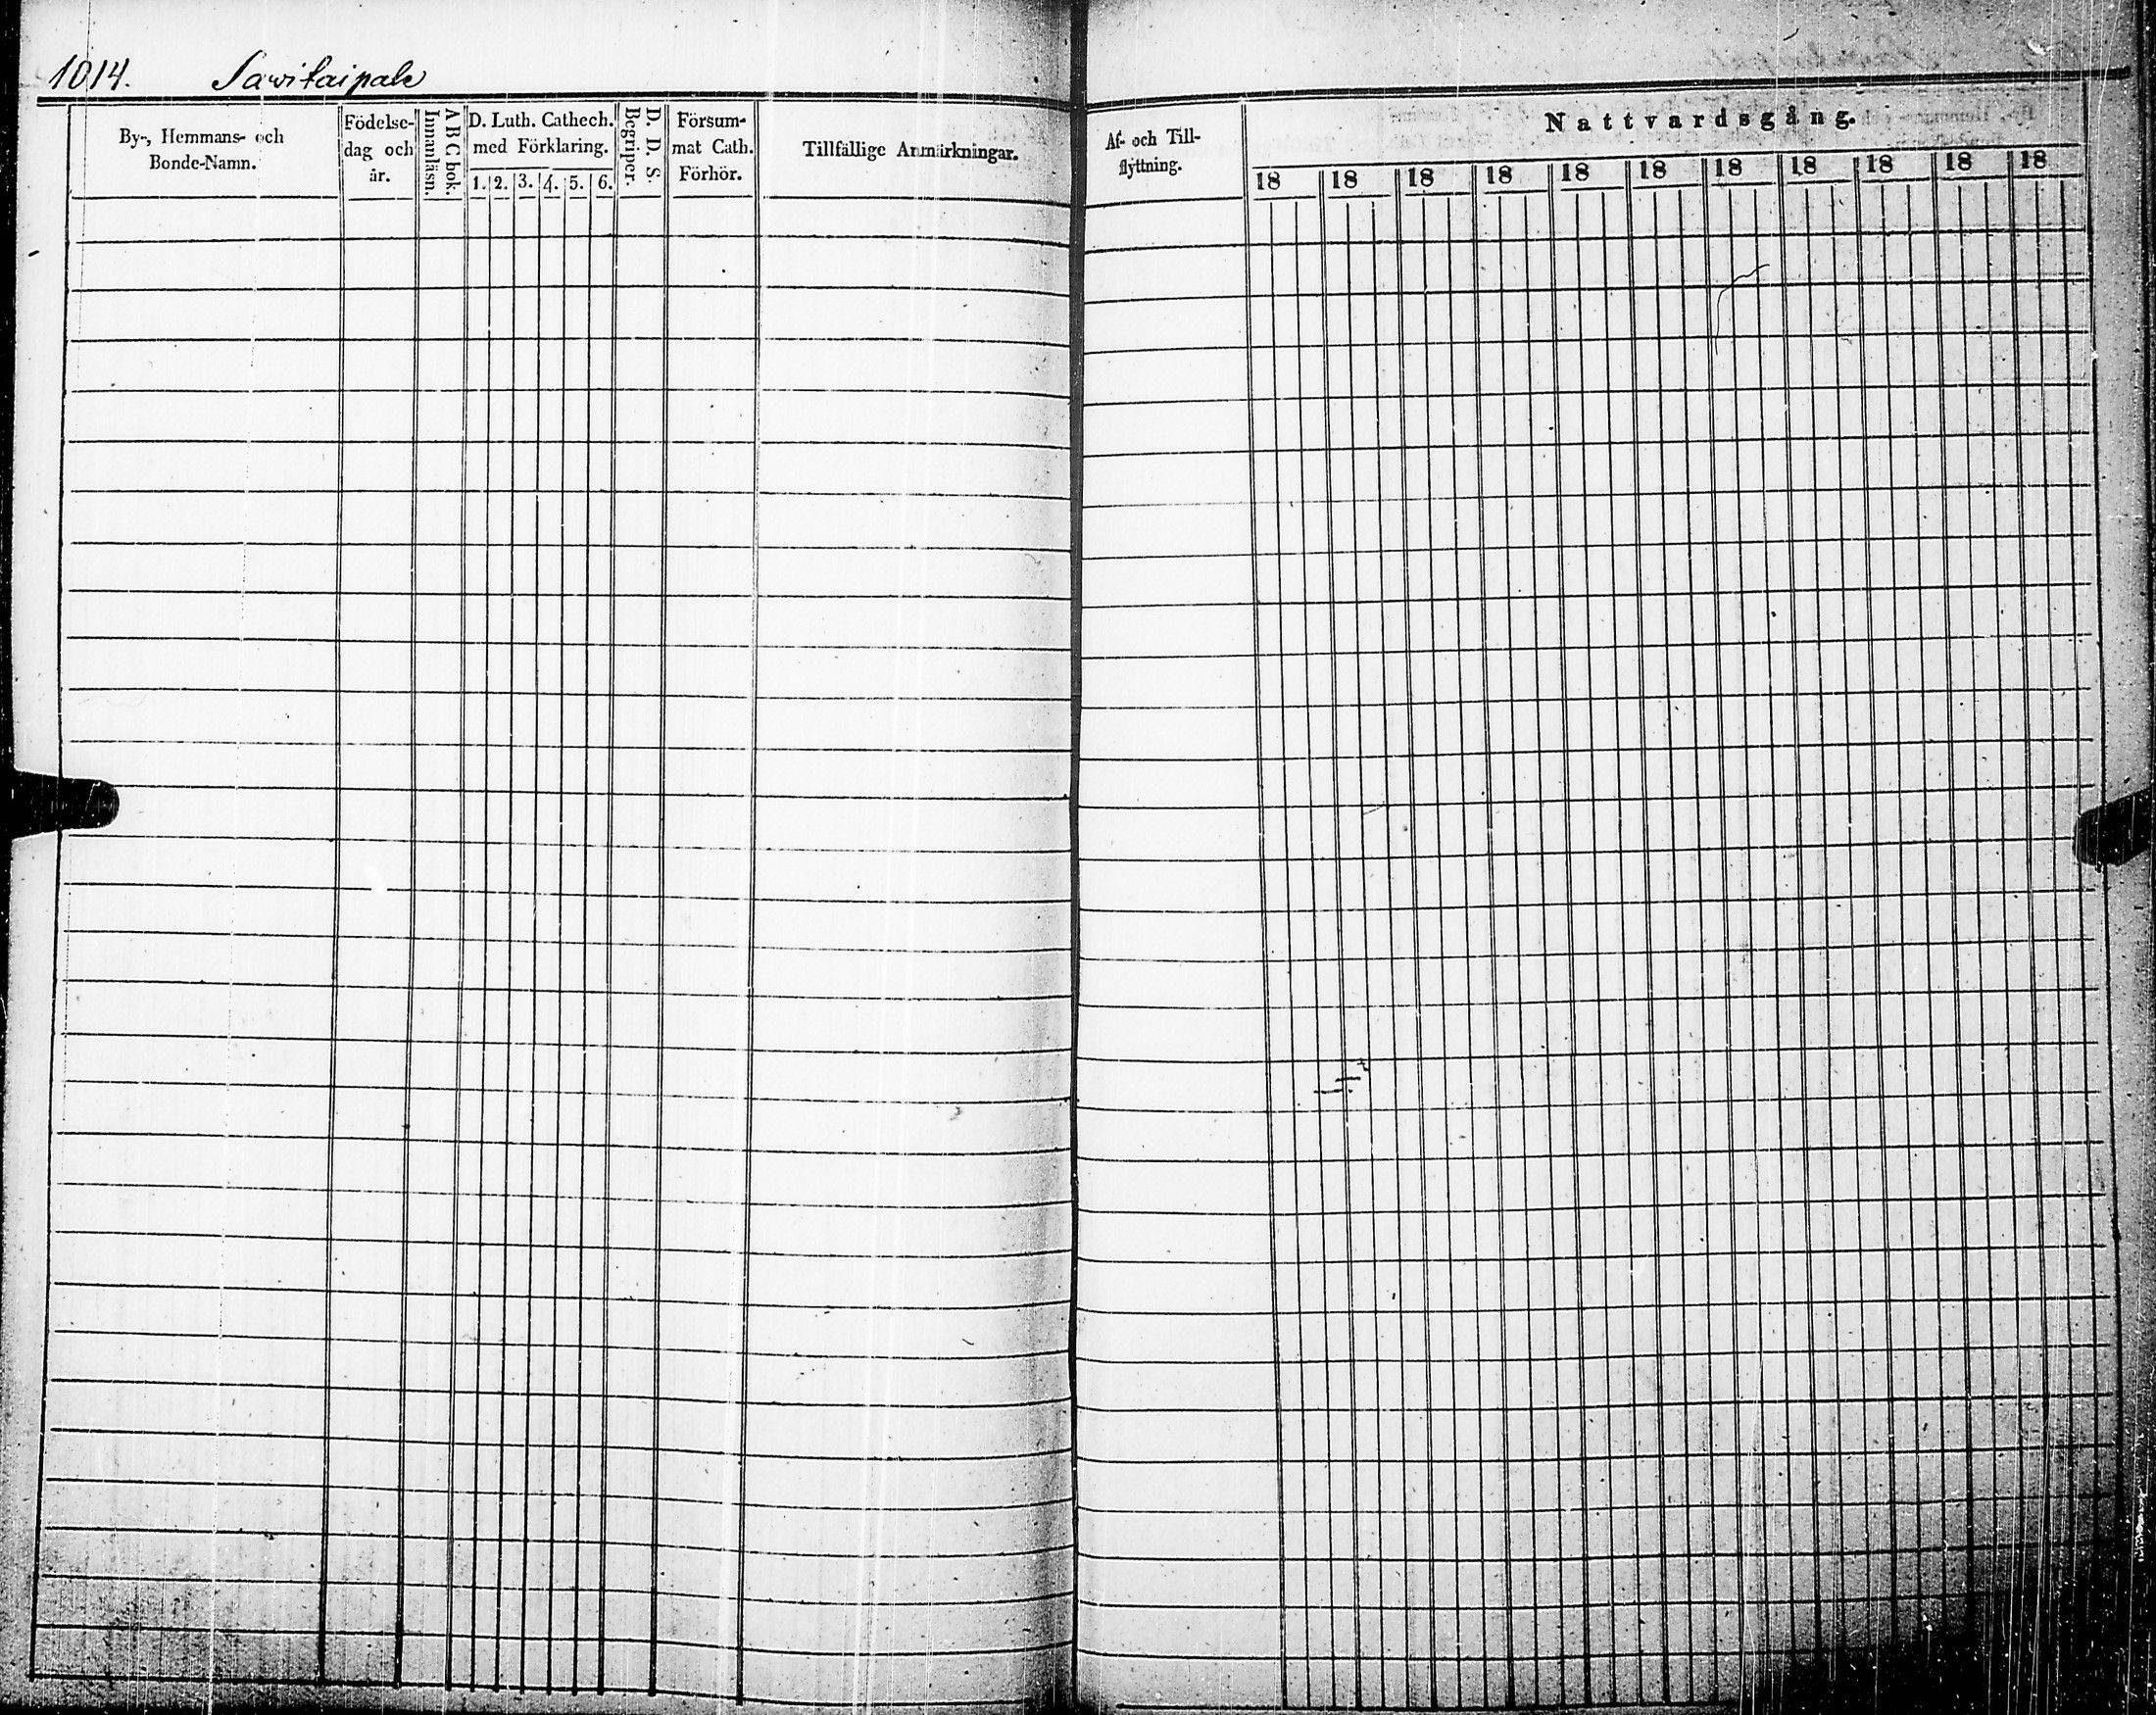 1014. Sawitaipale
By-, Hemmans- och
Bonde-Namn.
Födelse-
dag och
år.
A B C bok.
Innanläsn.
D. Luth. Cathech.
med Förklaring.
1. 2. 3. 4. 5. 6.
D. D. S.
Begriper.
Försum-
mat Cath.
Förhör.
Tillfällige Anmärkningar.
Af- och Till-
flyttning.
Nattvardsgång.
18 18 18 18 18 18 18 18 18 18 18